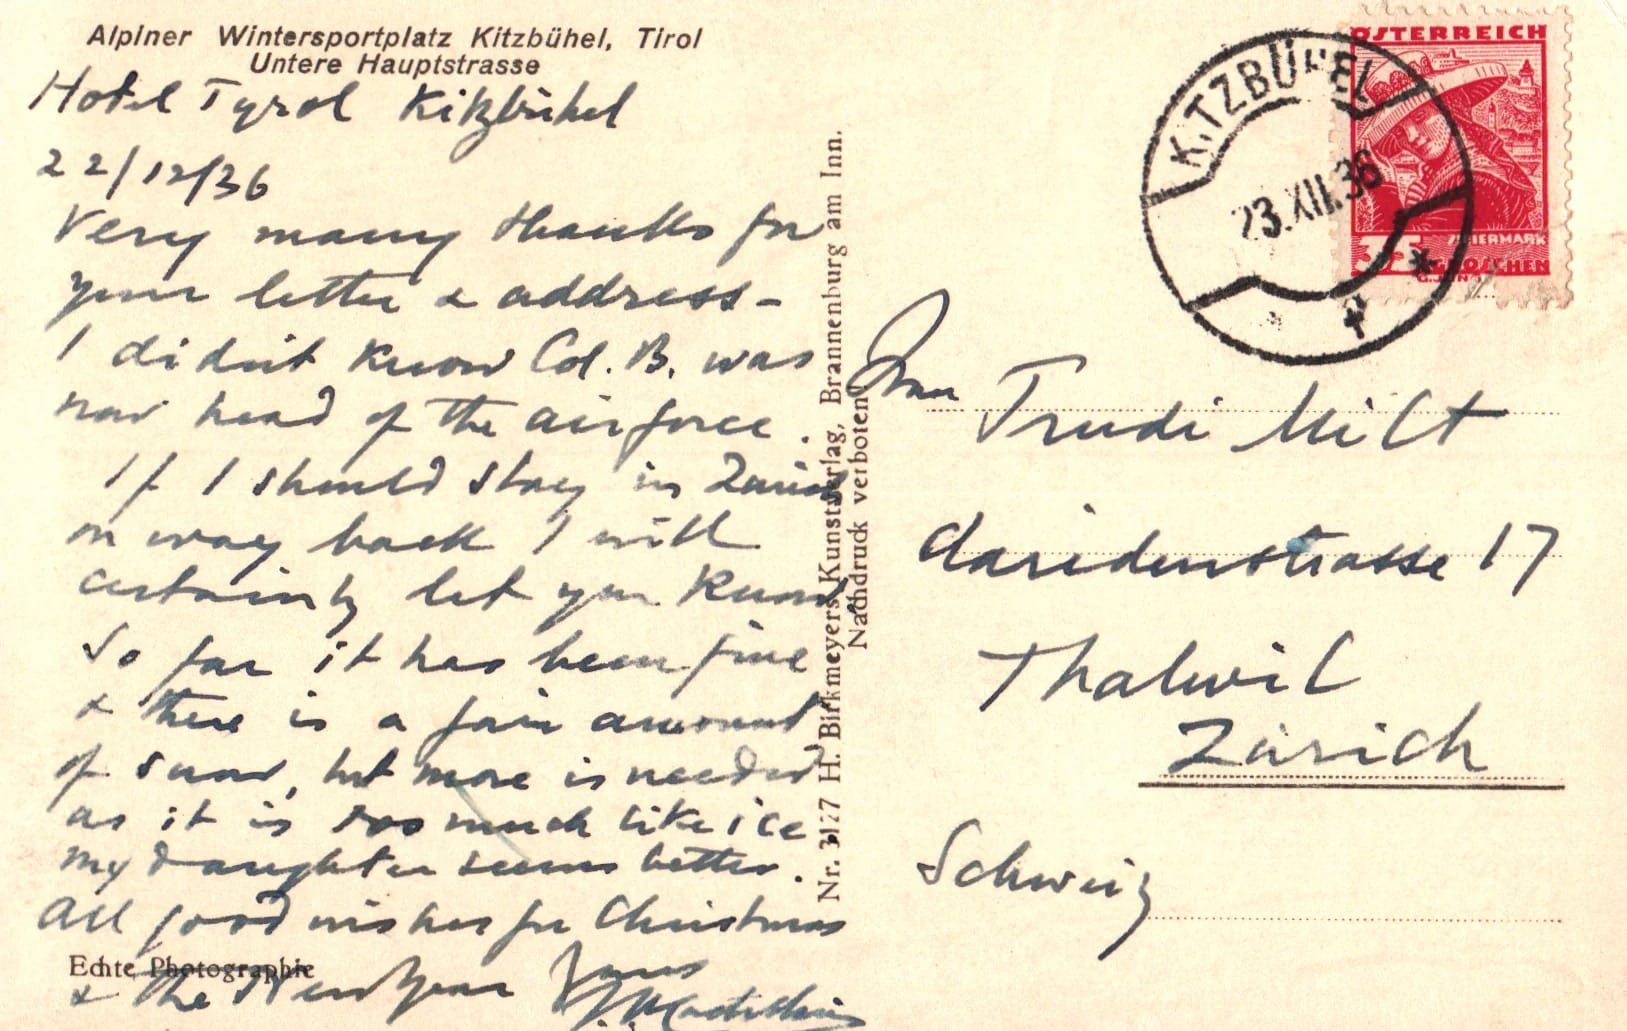 Alpiner Wintersportplatz Kitzbühel, Tirol
Untere Hauptstrasse
Hotel Tyrol Kitzbühel
22/12/36
Very many thanks for
your letter & address-
I didn't know Col. B. was
now head of the airforce.
If I should stay in Zurich
on way back I will
certainly let you know.
So far it has been fine
& there is a fair amount
of snow, but more is needed
as it is too much like ice
my daughter seems better.
All good wishes for Christmas
& the New Year Yours
Echte Photographie
Nr. 3177 H. Birkmeyers Kunstverlag, Brannenburg am Inn.
Nachdruck verboten!
KITZBÜHEL
23.XII.36
ÖSTERREICH
STEIERMARK
35 GROSCHEN
Frau
Trudi Milt
Claridenstrasse 17
Thalwil
Zürich
Schweiz